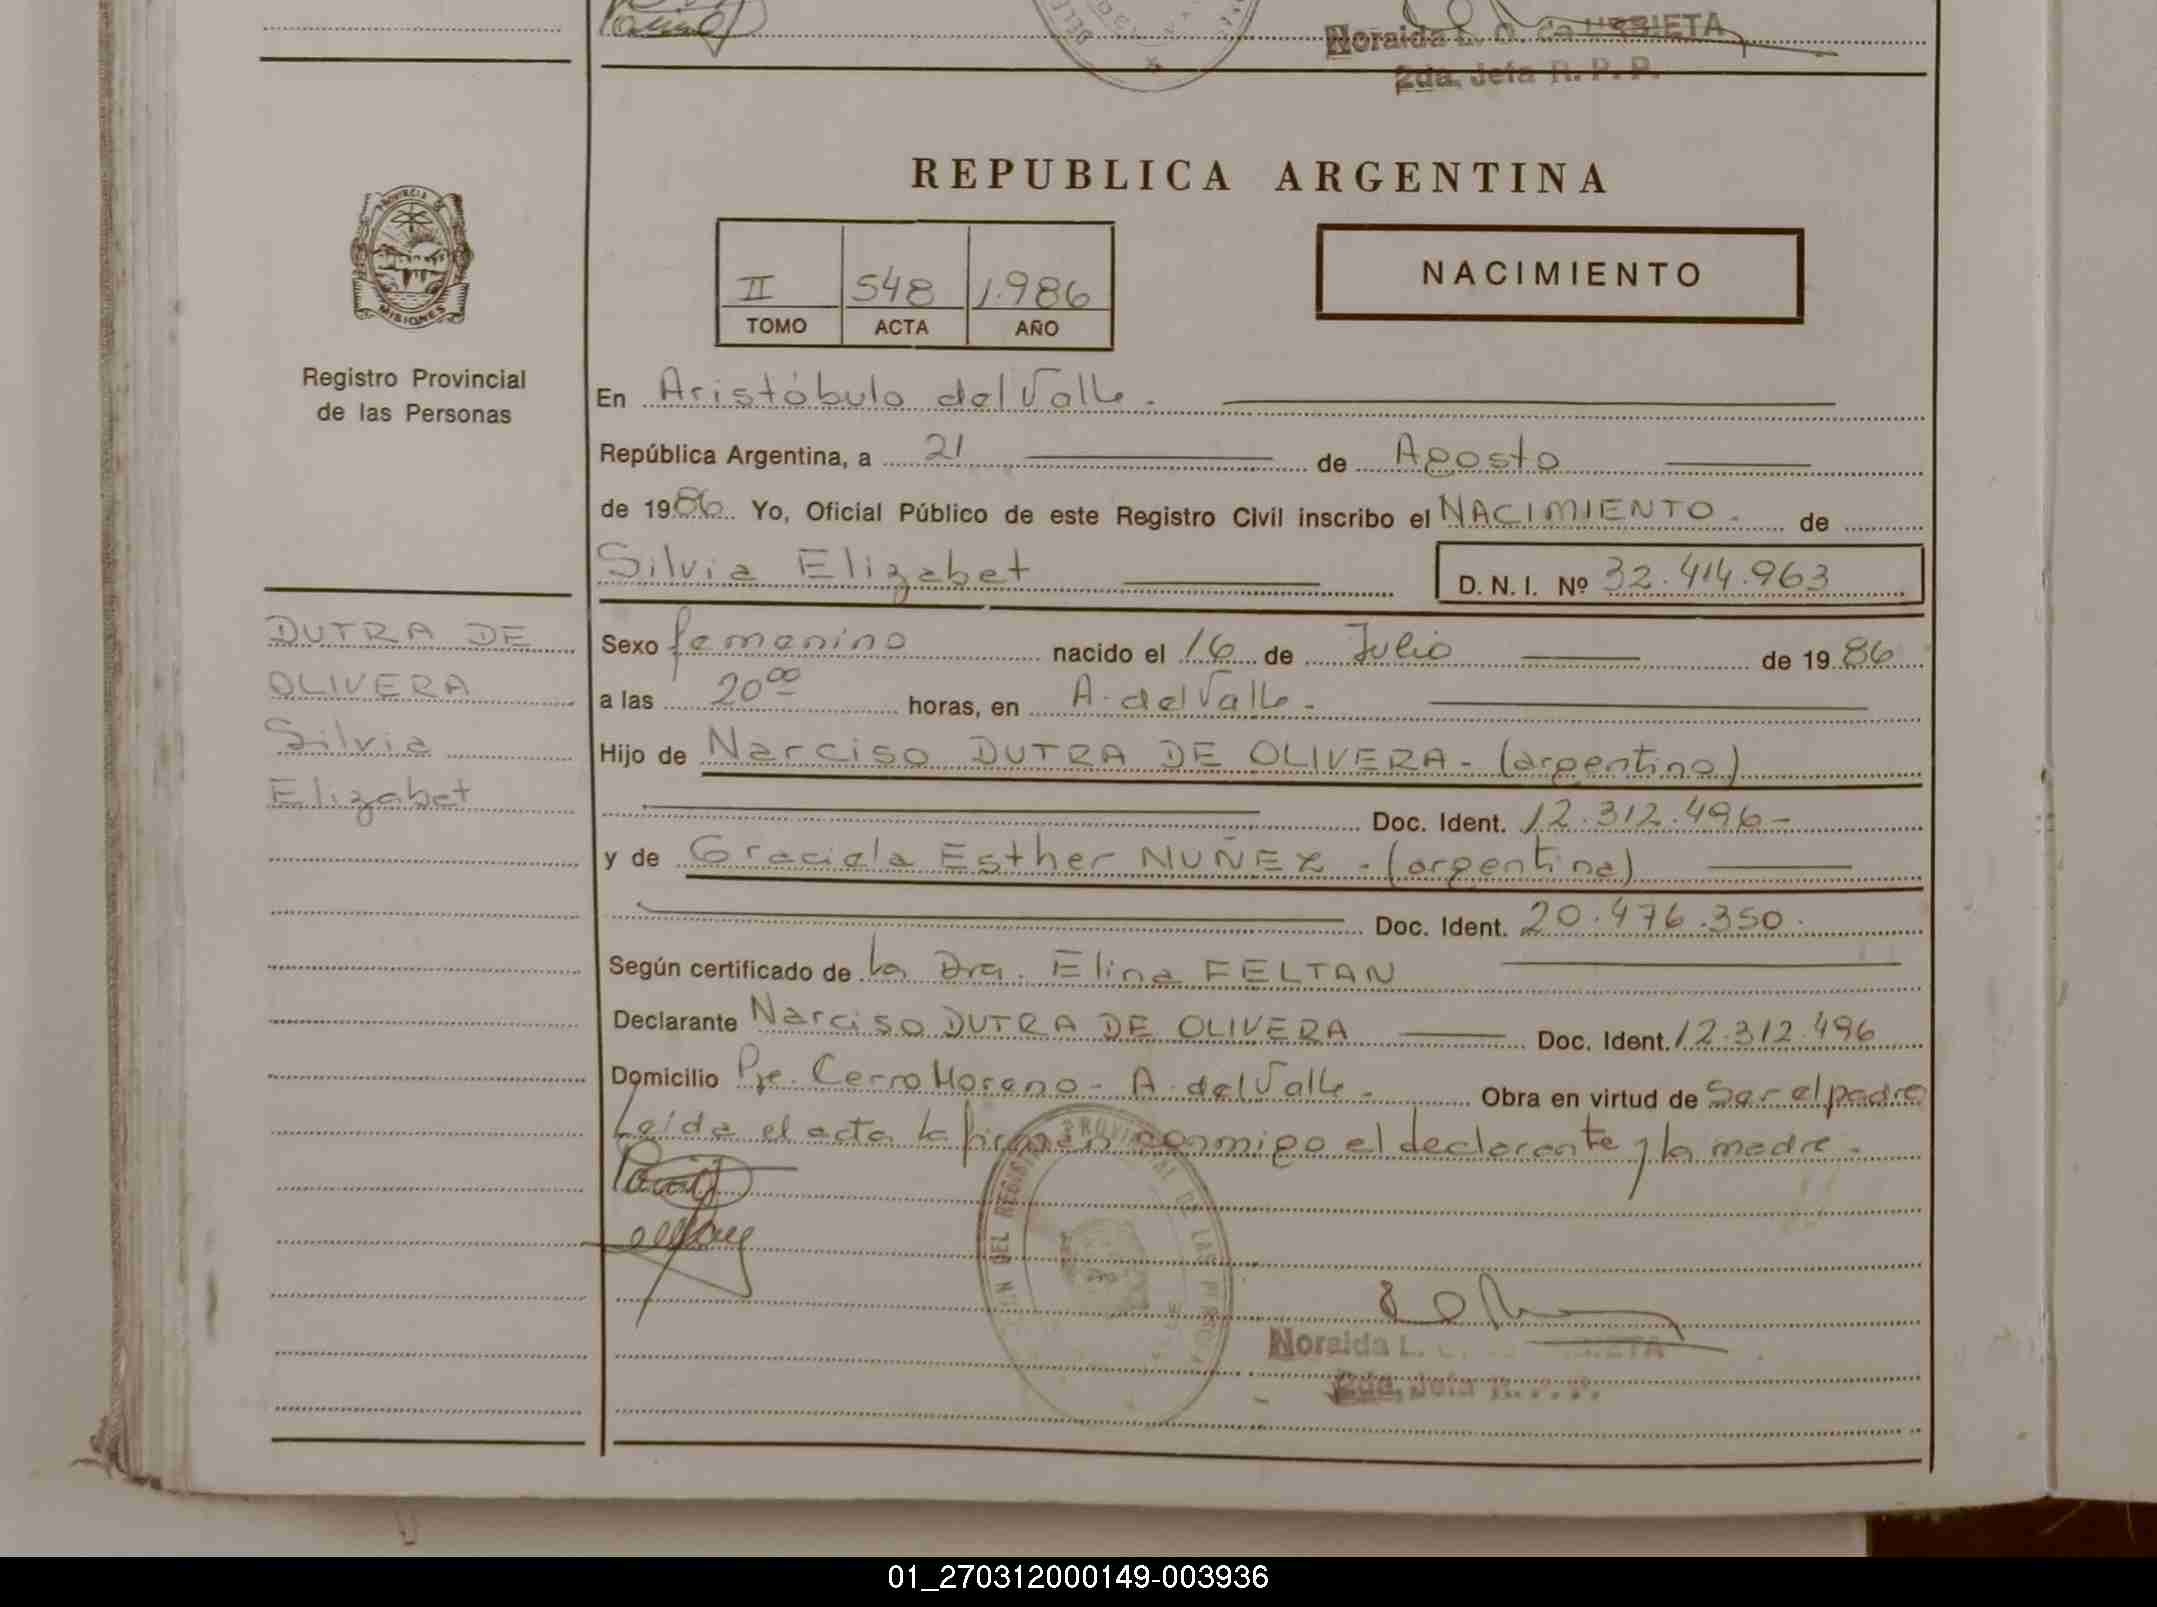 Noraida L. O. de URBIETA
2da. Jefa R. P. P.
PROVINCIA DE
MISIONES
Registro Provincial
de las Personas
DUTRA DE
OLIVERA
Silvia
Elizabet
REPUBLICA ARGENTINA
II 548 1.986
TOMO ACTA AÑO
NACIMIENTO
En Aristóbulo del Valle.
República Argentina, a 21 de Agosto
de 1986. Yo, Oficial Público de este Registro Civil inscribo el NACIMIENTO. de
Silvia Elizabet D. N. I. Nº 32.414.963
Sexo femenino nacido el 16 de Julio de 1986
a las 20⁰⁰ horas, en A. del Valle.
Hijo de Narciso DUTRA DE OLIVERA - (argentino)
Doc. Ident. 12.312.496-
y de Graciela Esther NUÑEZ - (argentina)
Doc. Ident. 20.476.350.
Según certificado de la Dra. Elina FELTAN
Declarante Narciso DUTRA DE OLIVERA Doc. Ident. 12.312.496
Domicilio Pje. Cerro Moreno - A. del Valle. Obra en virtud de Ser el padre
Leída el acta la firman conmigo el declarante y la madre.
DEL REGISTRO PROVINCIAL DE LAS PERSO
Noraida L.
2da. Jefa R. P. P.
01_270312000149-003936